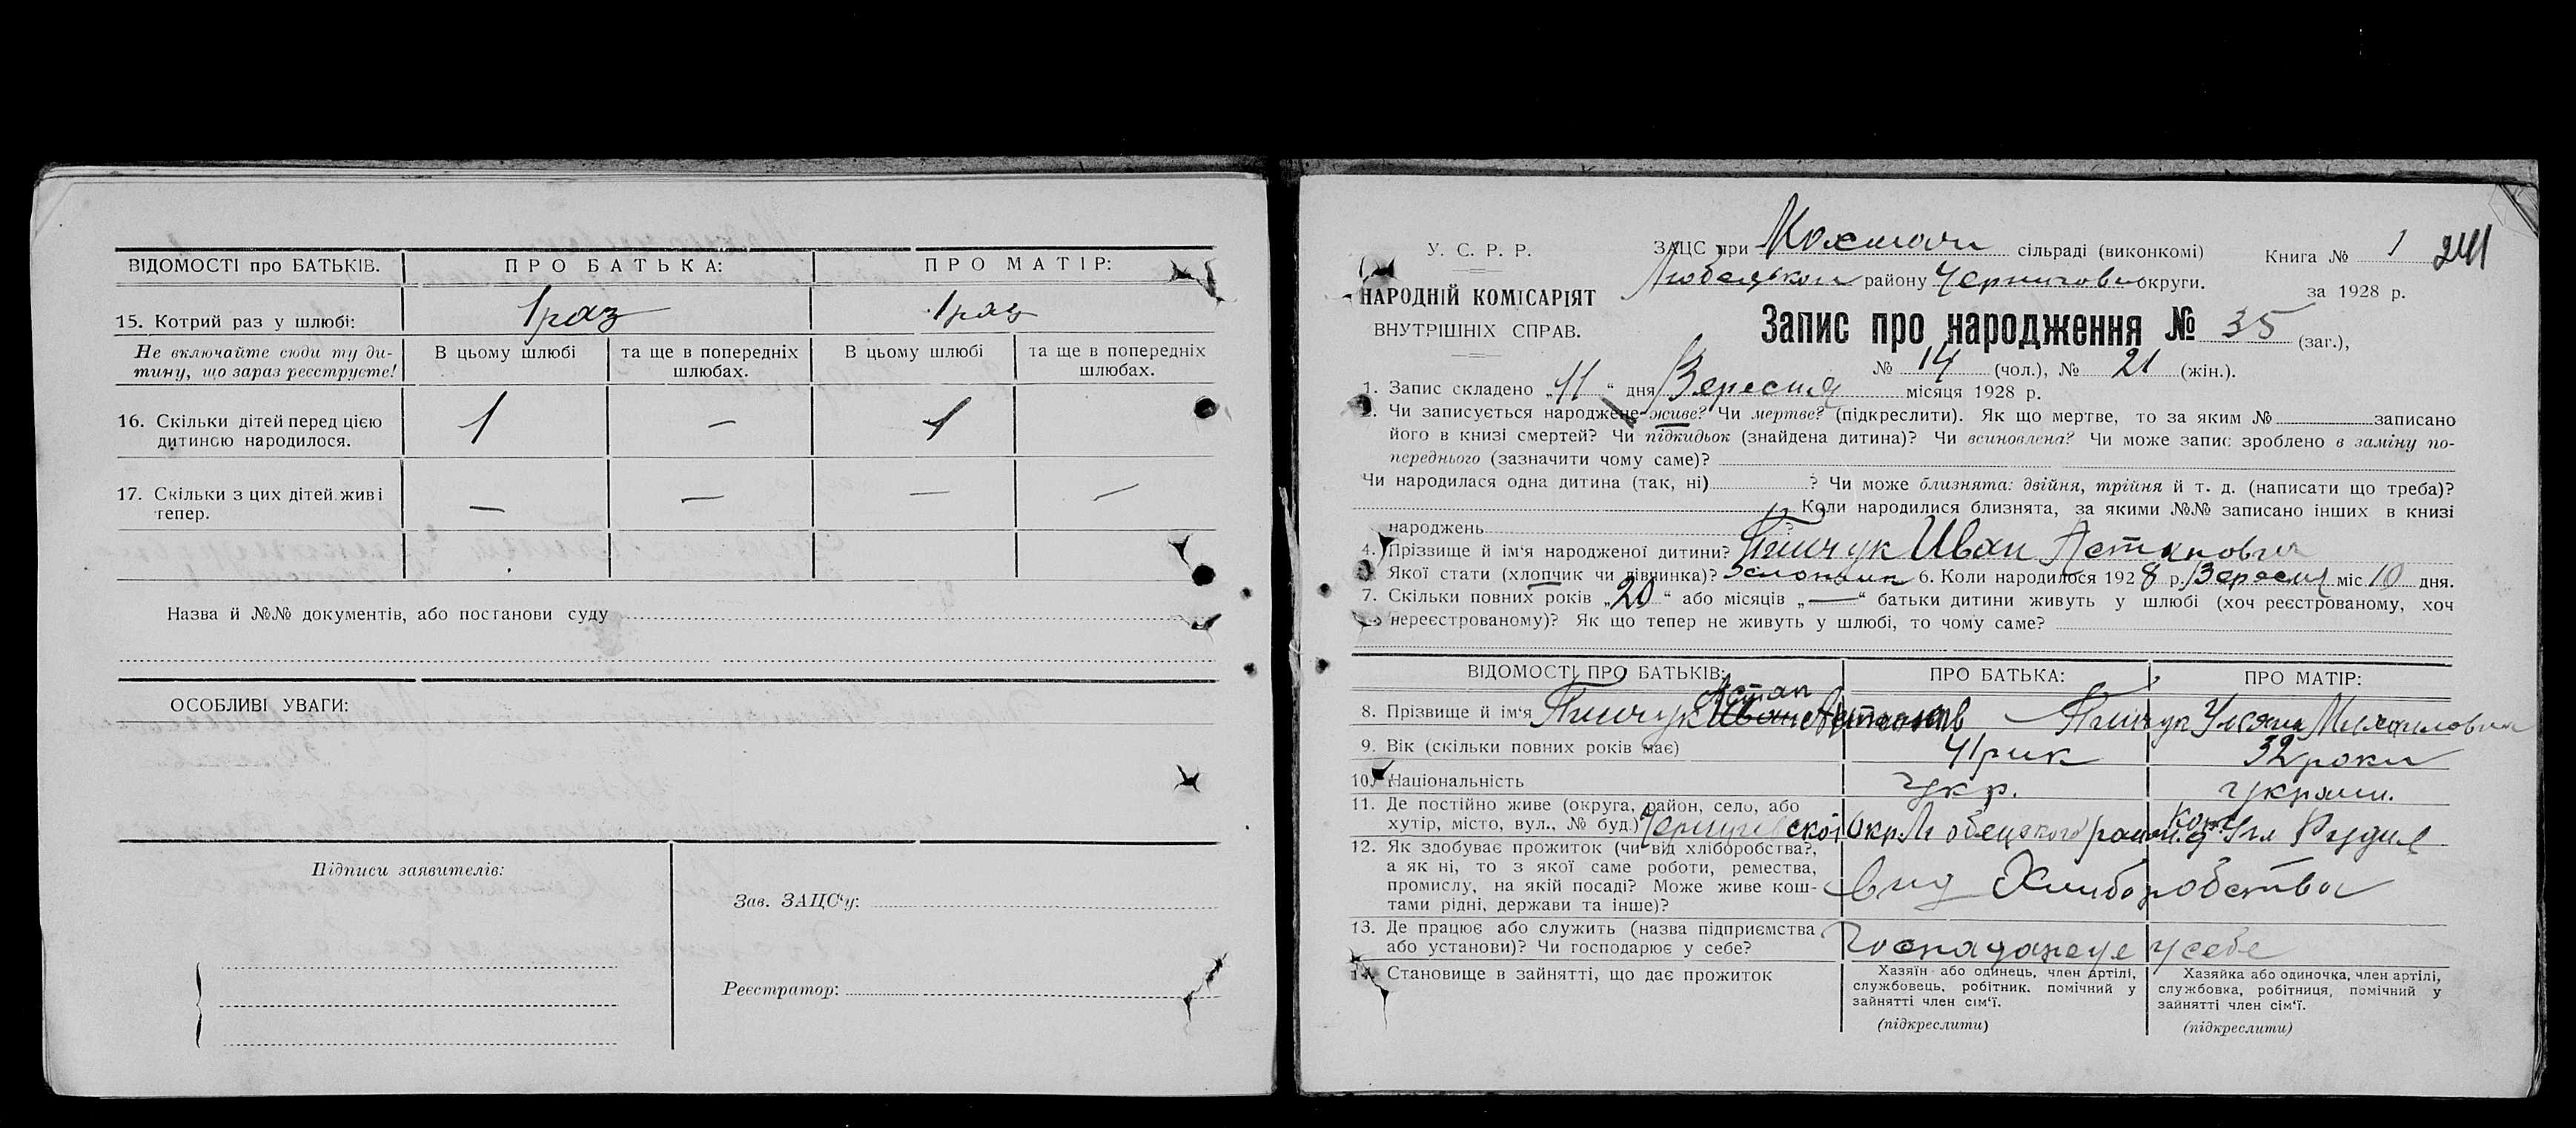 ВІДОМОСТІ про БАТЬКІВ. ПРО БАТЬКА: ПРО МАТІР:
15. Котрий раз у шлюбі: 1 раз 1 раз
Не включайте сюди ту ди- В цьому шлюбі та ще в попередніх В цьому шлюбі та ще в попередніх
тину, що зараз реєструєте! шлюбах. шлюбах.
16. Скільки дітей перед цією 1 — 1
дитиною народилося.
17. Скільки з цих дітей живі — — — —
тепер.
Назва й №№ документів, або постанови суду
ОСОБЛИВІ УВАГИ:
Підписи заявителів:
Зав. ЗАЦС'у:
Реєстратор:
У. С. Р. Р.
НАРОДНІЙ КОМІСАРІЯТ
ВНУТРІШНІХ СПРАВ.
ЗАЦС при сільраді (виконкомі)
району Чернигови округи.
Книга № 1 241
за 1928 р.
Запис про народження № 35 (заг.),
№ 14 (чол.), № 21 (жін.).
1. Запис складено „11“ дня Вересня місяця 1928 р.
Чи записується народжене живе? Чи мертве? (підкреслити). Як що мертве, то за яким № записано
його в книзі смертей? Чи підкидьок (знайдена дитина)? Чи всиновлена? Чи може запис зроблено в заміну по-
переднього (зазначити чому саме)?
Чи народилася одна дитина (так, ні) ? Чи може близнята: двійня, трійня й т. д. (написати що треба)?
Коли народилися близнята, за якими №№ записано інших в книзі
народжень ?
4. Прізвище й ім'я народженої дитини? Иван
Якої стати (хлопчик чи дівчинка)? Хлопчик 6. Коли народилося 1928 р. Вересня міс 10 дня.
7. Скільки повних років „20“ або місяців „—“ батьки дитини живуть у шлюбі (хоч реєстрованому, хоч
нереєстрованому)? Як що тепер не живуть у шлюбі, то чому саме?
ВІДОМОСТІ ПРО БАТЬКІВ: ПРО БАТЬКА: ПРО МАТІР:
8. Прізвище й ім'я Астап Уляна Михайловна
9. Вік (скільки повних років має) 41 рик 32 роки
10. Національність Укр. Украин.
11. Де постійно живе (округа, район, село, або
хутір, місто, вул., № буд.) Рудня
12. Як здобуває прожиток (чи від хліборобства?,
а як ні, то з якої саме роботи, ремества,
промислу, на якій посаді? Може живе кош- вид Хлиборобства
тами рідні, держави та інше)?
13. Де працює або служить (назва підприємства
або установи)? Чи господарює у себе? у себе
14. Становище в зайнятті, що дає прожиток
Хазяїн або одинець, член артілі,
службовець, робітник, помічний у
зайнятті член сім'ї.
(підкреслити)
Хазяйка або одиночка, член артілі,
службовка, робітниця, помічний у
зайнятті член сім'ї.
(підкреслити)